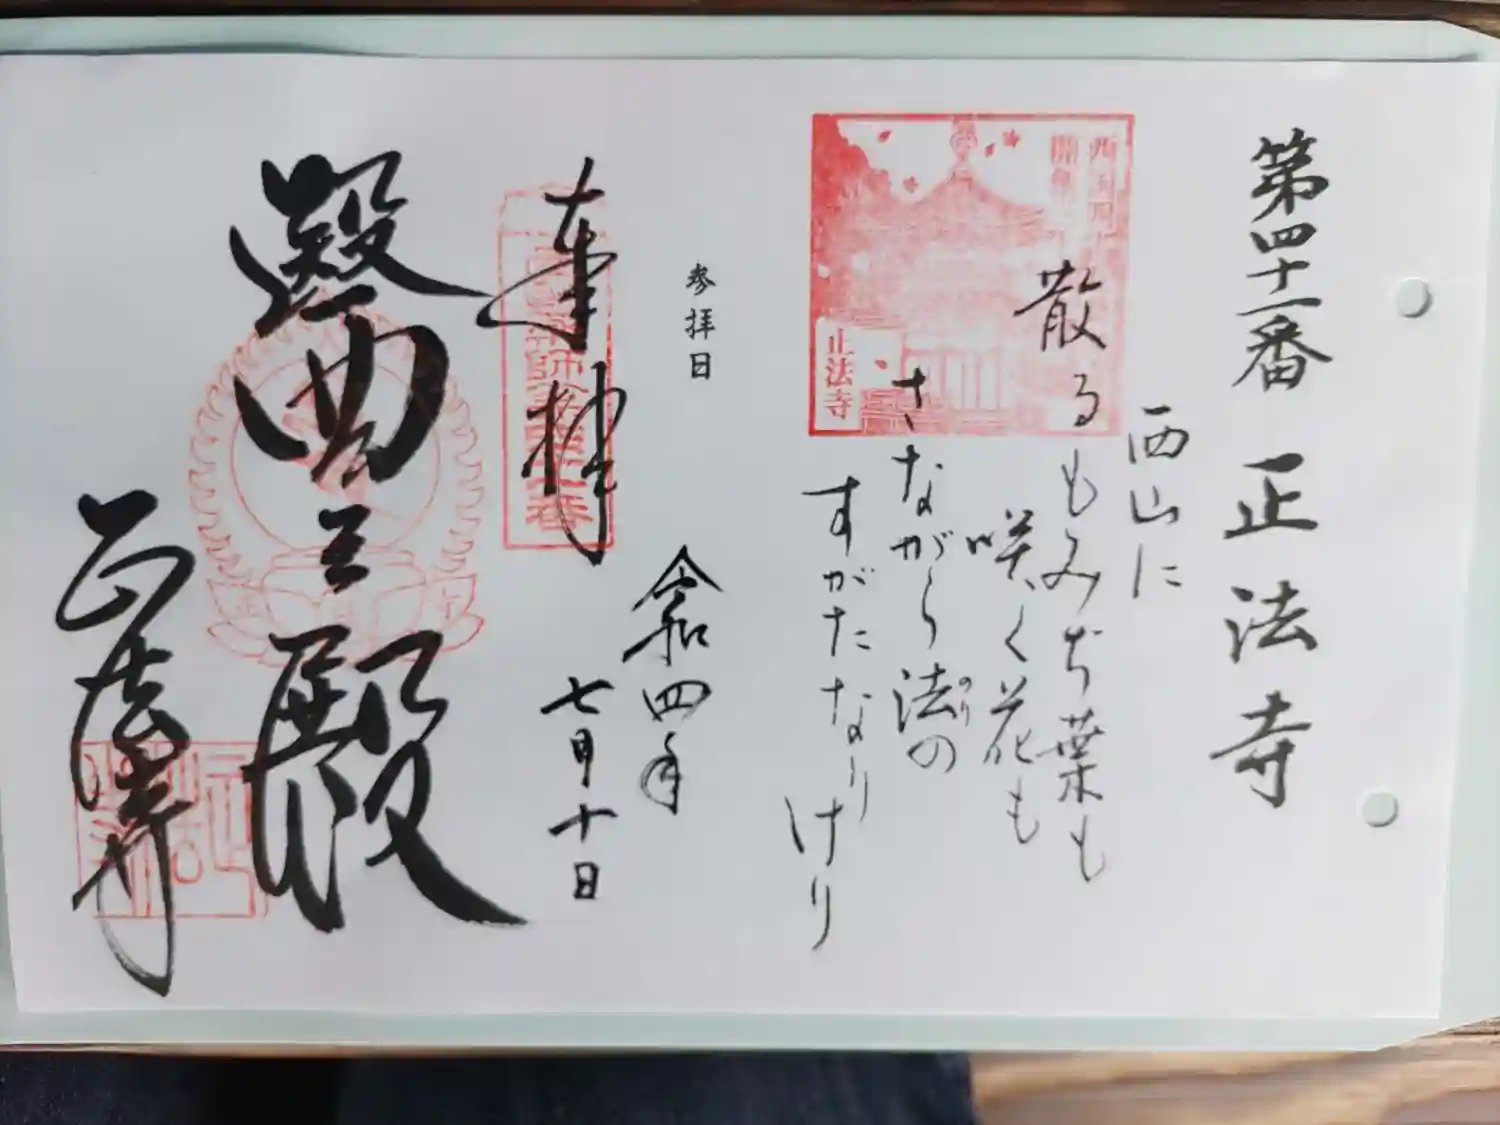 第四十一番 正法寺
西山に
散るもみぢ葉も
咲く花も
さながら法の
のり
すがたなり
けり
正法寺
参拝日
令和四年
七月十日
奉拝
醫王殿
正法寺